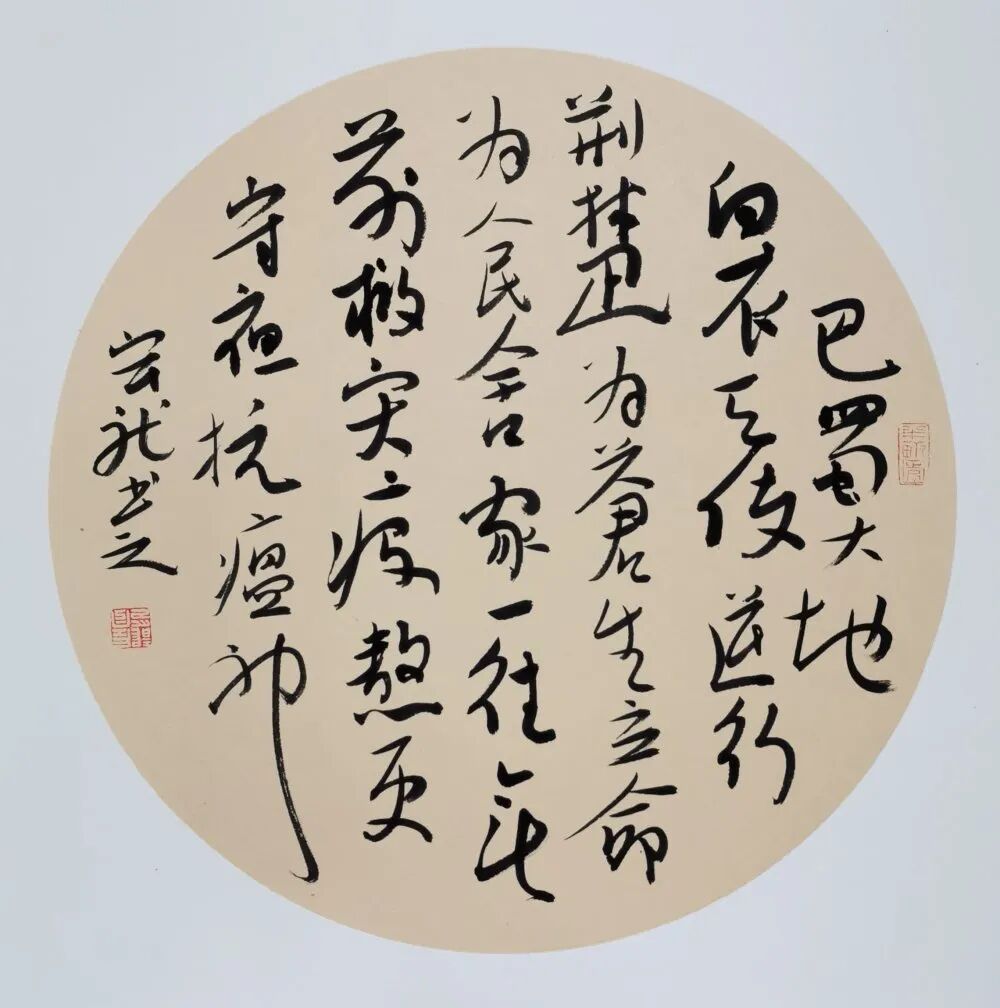 巴蜀大地
白衣天使逆行
荆楚为蒼生立命
为民舍家一往无
前救灾疫熬更
守夜抗瘟神
龙书之